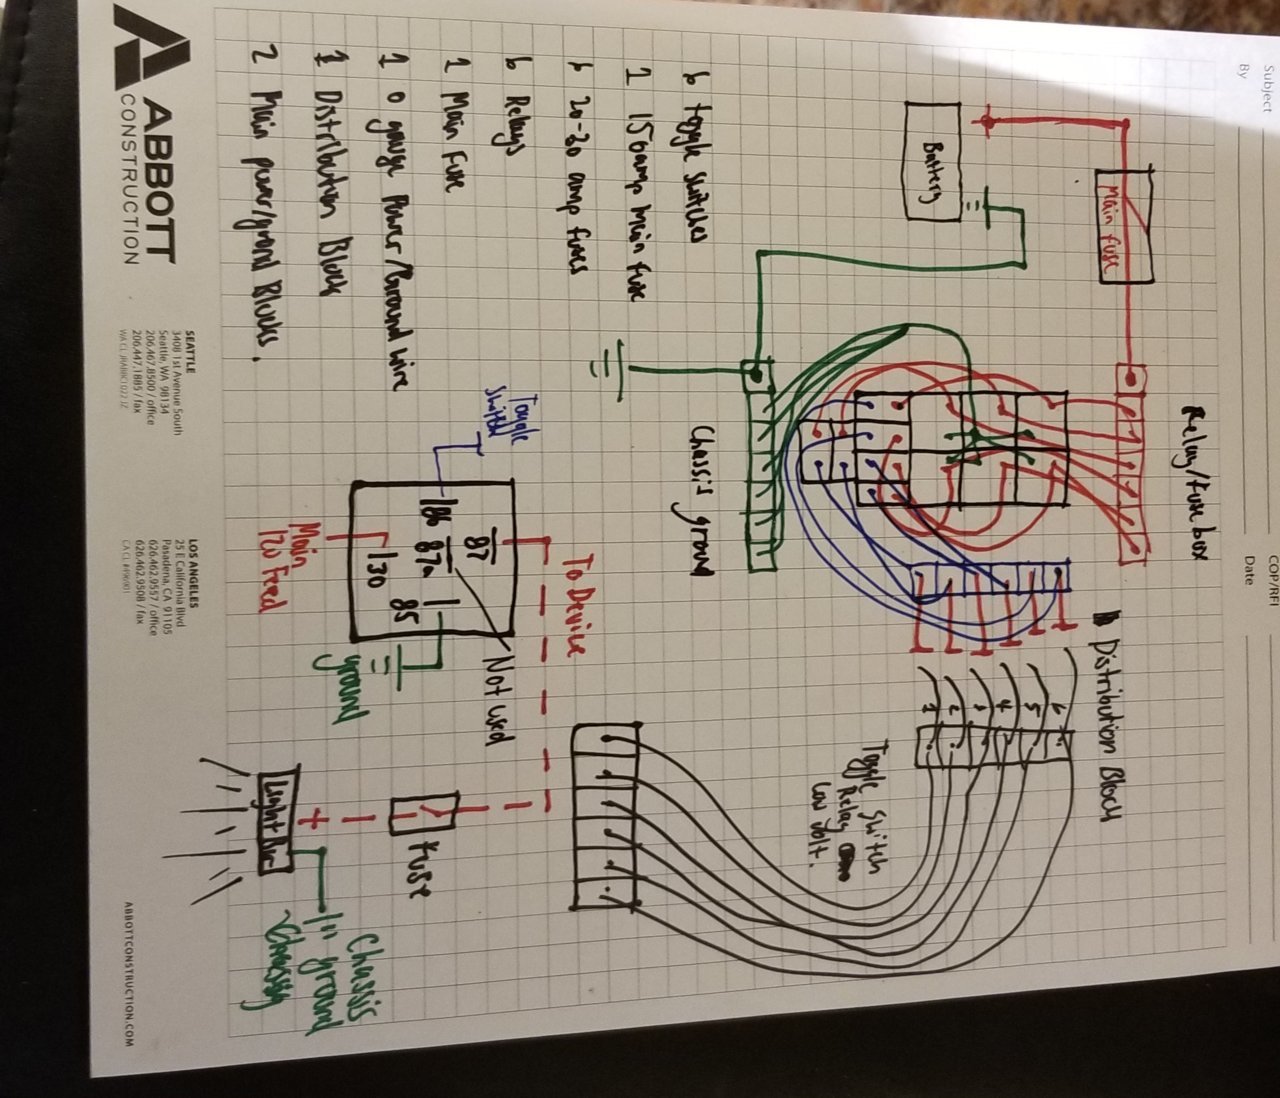 Subject
By
COP/RFI
Date
Relay/Fuse box
Main fuse
Battery
Distribution Block
1 2 3 4 5 6
Toggle Switch
Relay
Low Volt.
Chassis ground
6 toggle switches
1 150amp Main Fuse
6 20-30 amp fuses
6 Relays
1 Main Fuse
1 0 gauge Power/Ground wire
1 Distribution Block
2 Main power/ground Blocks.
Toggle
Switch
To Device
87
86
87a
30
85
Not used
Main
12v Feed
ground
Fuse
+
-
Chassis
ground
ABBOTT
CONSTRUCTION
SEATTLE
3408 1st Avenue South
Seattle, WA 98134
206.467.8500 / office
206.447.1885 / fax
LOS ANGELES
25 E California Blvd
Pasadena, CA 91105
626.462.9557 / office
626.462.9508 / fax
ABBOTTCONSTRUCTION.COM